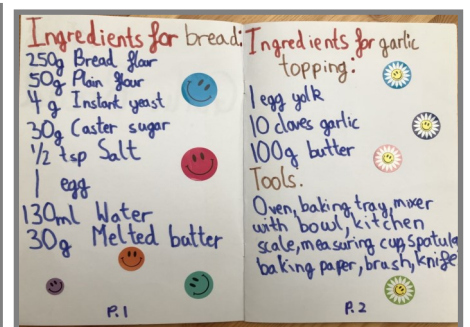 Ingredients for bread:
250g Bread flour
50g Plain flour
4g Instant yeast
30g Caster sugar
1/2 tsp Salt
1 egg
130ml Water
30g Melted butter
P.1
Ingredients for garlic
topping.
1 egg yolk
10 cloves garlic
100g butter
Tools.
Oven, baking tray, mixer
with bowl, kitchen
scale, measuring cup, spatula
baking paper, brush, knife
P.2